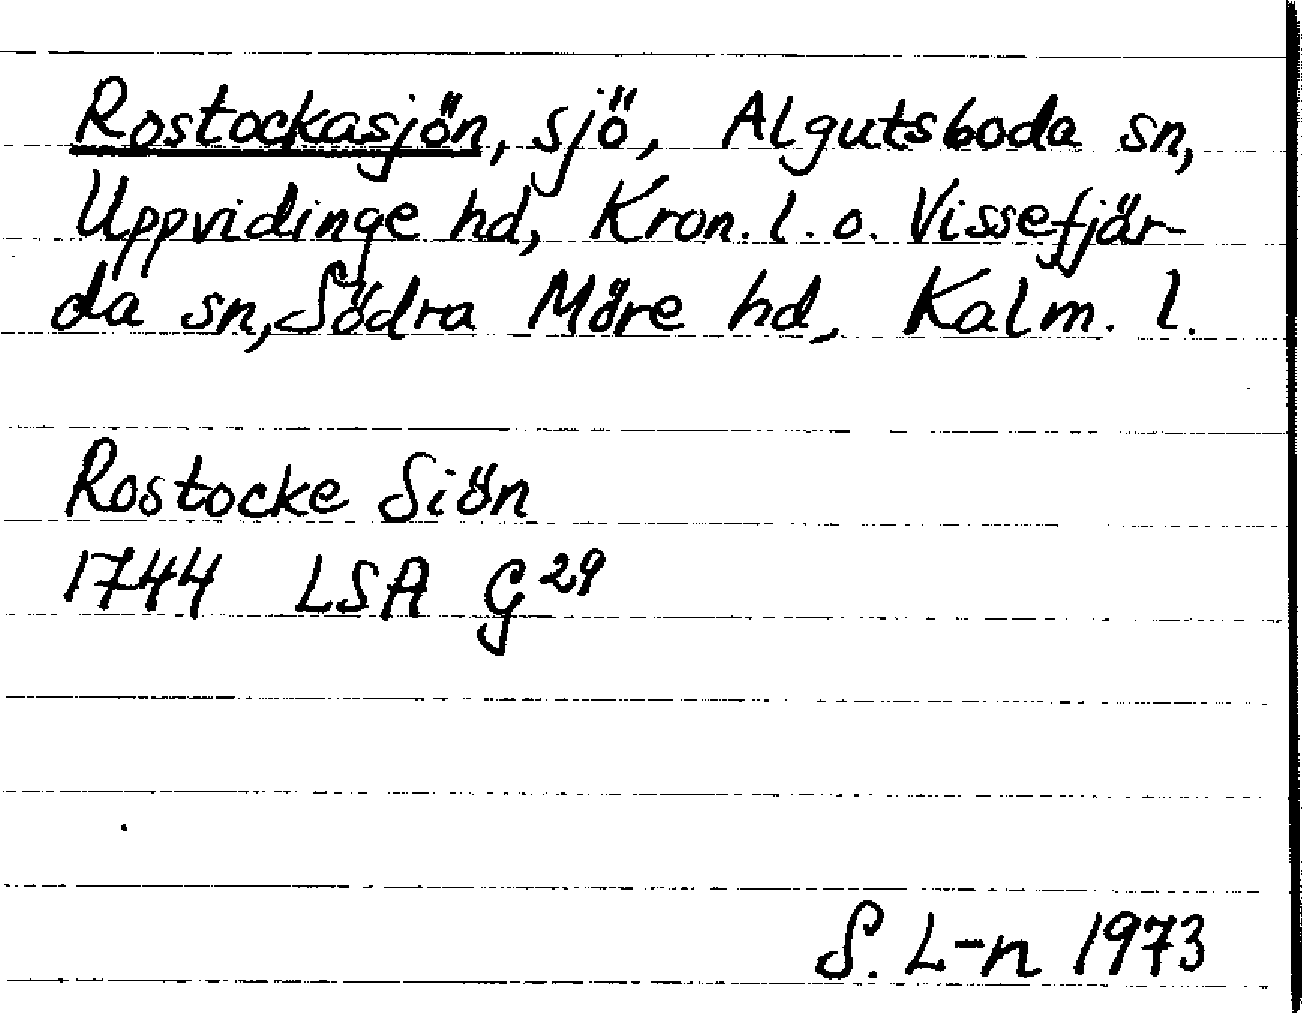 Rostockasjön, sjö, Algutsboda sn,
Uppvidinge hd, Kron. l. o. Vissefjär-
da sn, Södra Möre hd, Kalm. l.
Rostocke Siön
1744 LSA G 29
S. L-n 1973